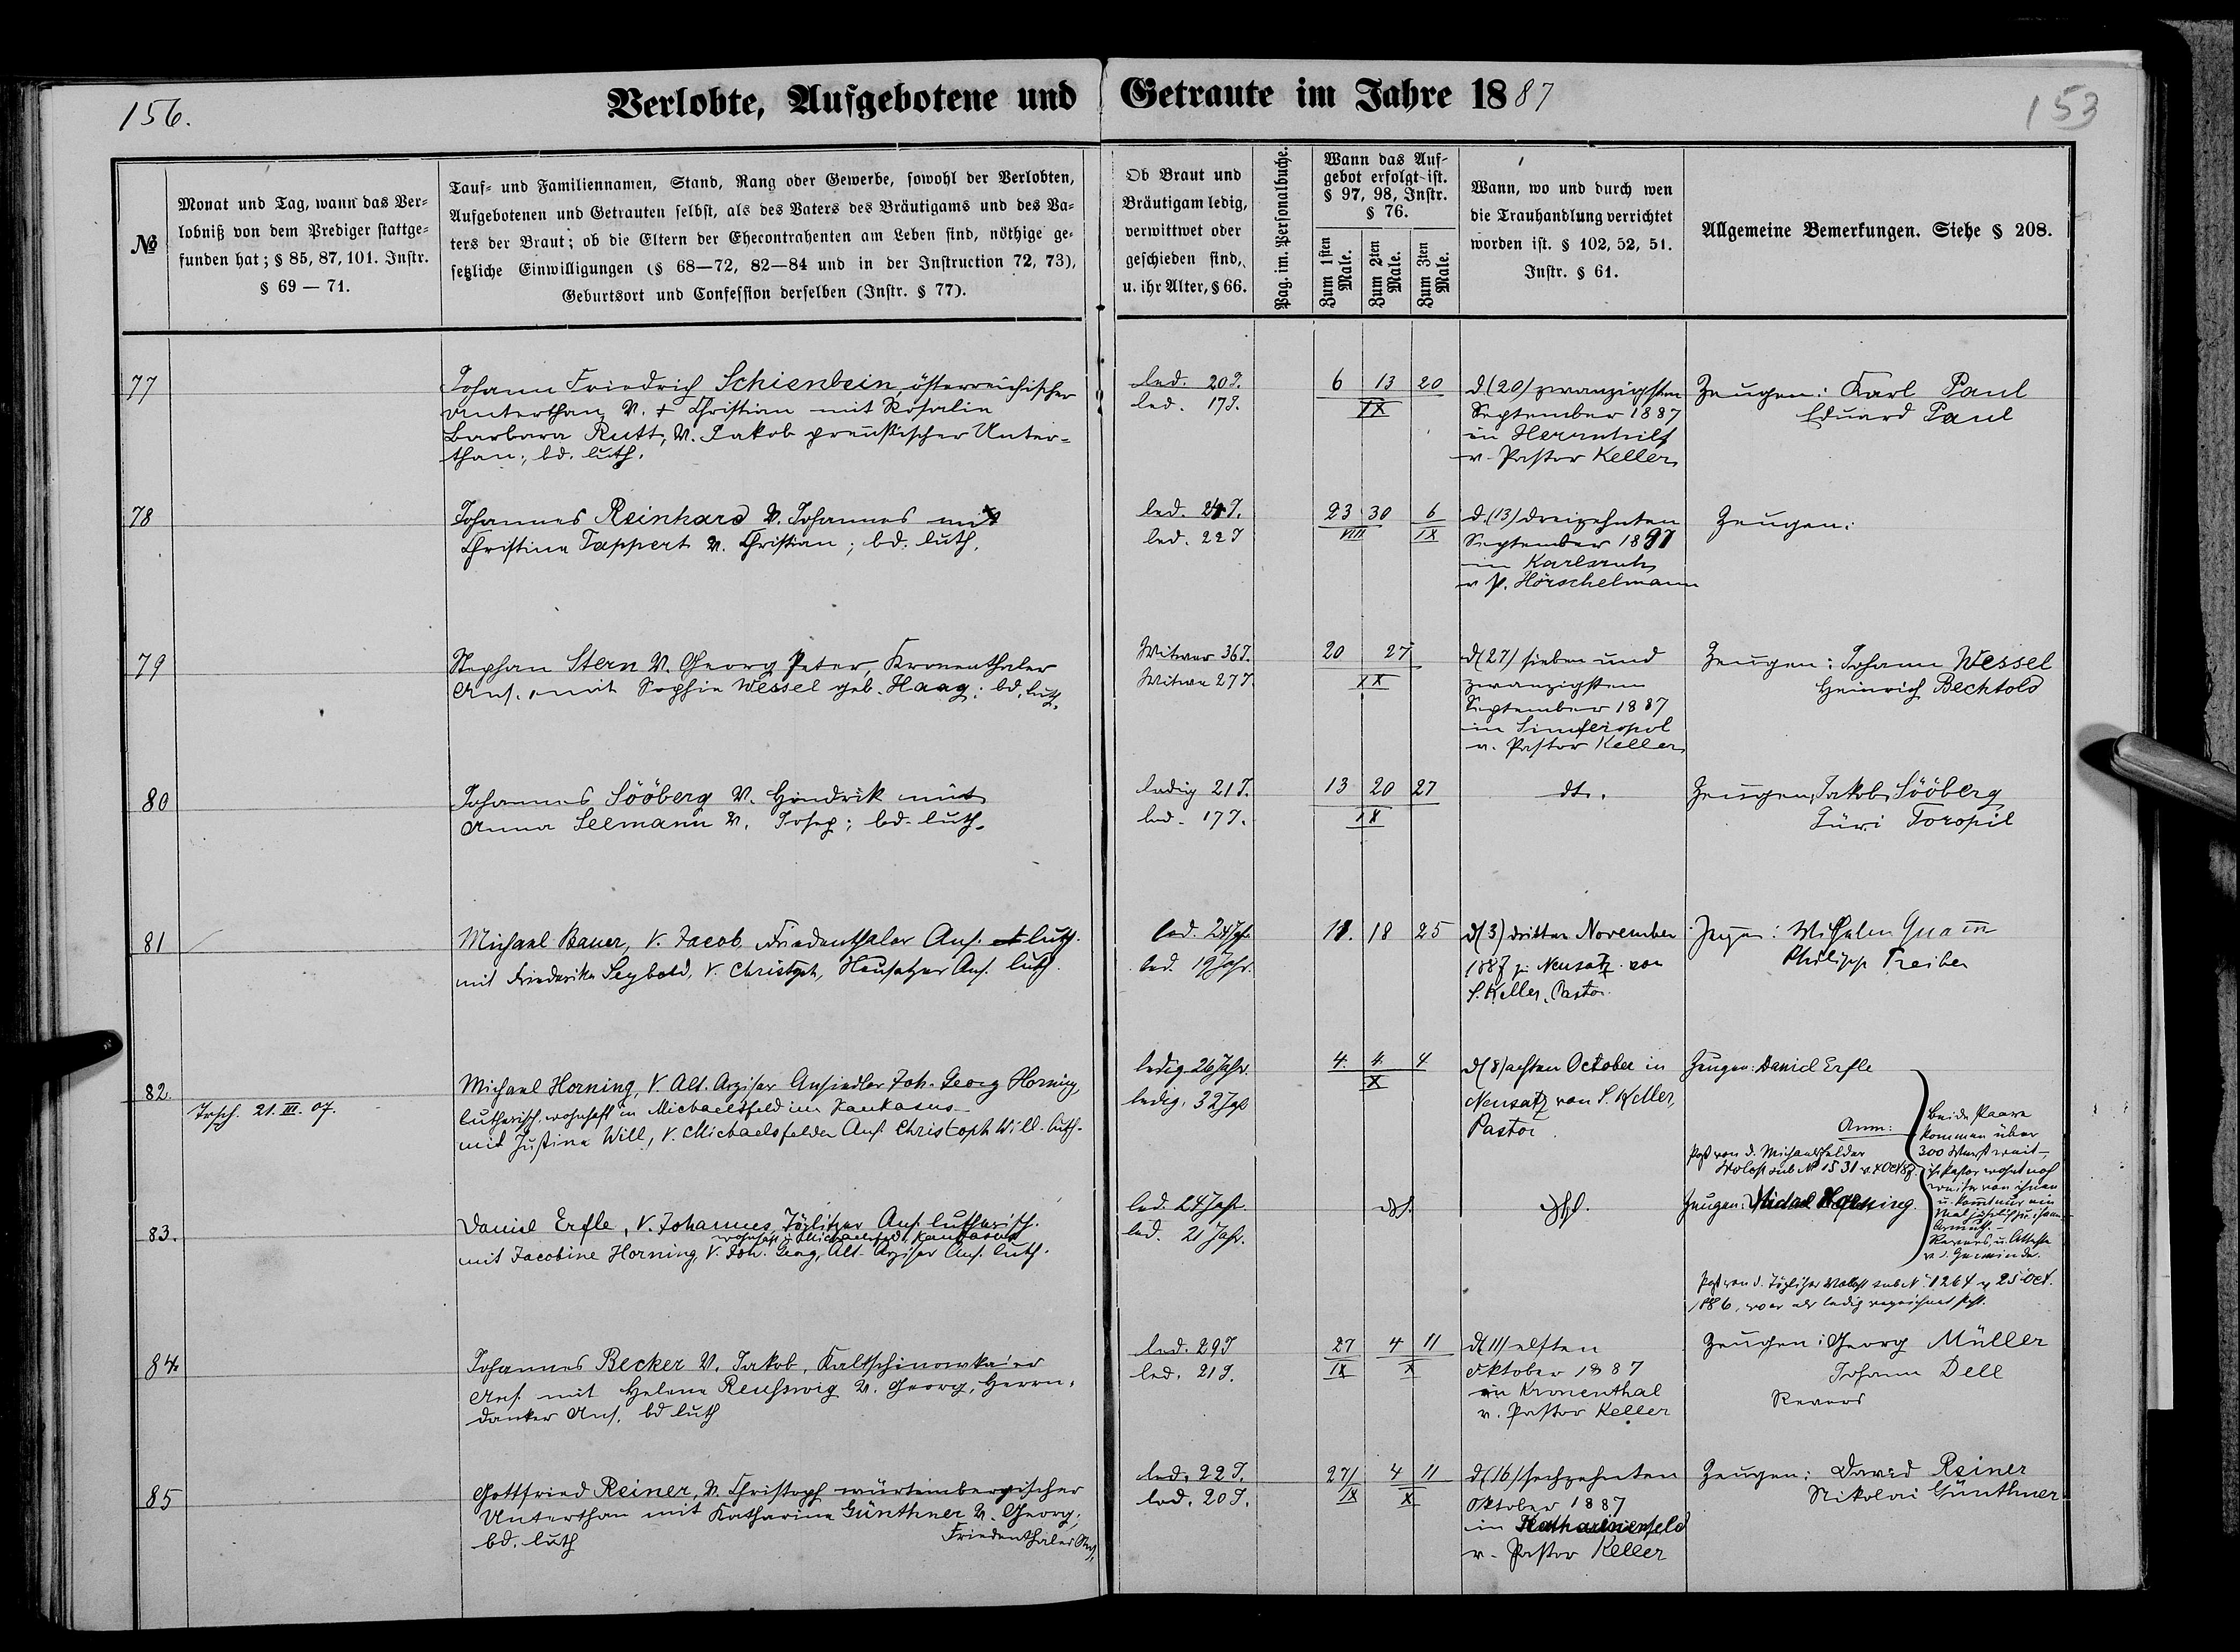 156.
Verlobte, Aufgebotene und Getraute im Jahre 1887
153
№
Monat und Tag, wann das Ver=
lobniß von dem Prediger stattge=
funden hat; § 85, 87, 101. Instr.
§ 69 — 71.
Tauf= und Familiennamen, Stand, Rang oder Gewerbe, sowohl der Verlobten,
Aufgebotenen und Getrauten selbst, als des Vaters des Bräutigams und des Va=
ters der Braut; ob die Eltern der Ehecontrahenten am Leben sind, nöthige ge=
setzliche Einwilligungen (§ 68—72, 82—84 und in der Instruction 72, 73),
Geburtsort und Confession derselben (Instr. § 77).
Ob Braut und
Bräutigam ledig,
verwittwet oder
geschieden sind,
u. ihr Alter, § 66.
Pag. im. Personalbuche.
Wann das Auf=
gebot erfolgt ist.
§ 97, 98, Instr.
§ 76.
Zum 1sten
Male.
Zum 2ten
Male.
Zum 3ten
Male.
Wann, wo und durch wen
die Trauhandlung verrichtet
worden ist. § 102, 52, 51.
Instr. § 61.
Allgemeine Bemerkungen. Siehe § 208.
77
Johann Friedrich Schienbein, österreichischer
Unterthan, V. + Christian mit Rosalie
Barbara Rutt, V. Jakob preußischer Unter=
than; bd. luth.
led. 20 J.
led. 17 J.
6 13 20
IX
d (20) zwanzigsten
September 1887
in Herrnhilf
v. Pastor Keller
Zeugen: Karl Paul
Eduard Paul
78
Johannes Reinhard V. Johannes mit
Christina Tappert V. Christian; bd. luth.
led. 24 J.
led. 22 J
23 30 6
VIII IX
d. (13) dreizehnten
September 1887
in Karlsruh
v P. Hörschelmann
Zeugen:
79
Stephan Stern V. Georg Peter, Kronenthaler
Ans. mit Sophie Wessel geb. Haag; bd. luth.
Witwer 36 J.
Witwe 27 J.
20 27
IX
d (27) sieben und
zwanzigsten
September 1887
in Simferopol
v. Pastor Keller
Zeugen: Johann Wessel
Heinrich Bechtold
80
Johannes Sööberg V. Hindrik mit
Anna Seemann V. Josep; bd. luth.
ledig 21 J.
led. 17 J.
13 20 27
IX
dt.
Zeugen: Jakob Sööberg
Jüri Toropil
81
Michael Bauer, V. Jacob, Friedenthaler Ans. luth.
mit Friederike Seybold, V. Christoph, Neusatzer Ans. luth.
led. 24 Jahr.
led. 19 Jahr.
11. 18 25
d (3) dritten November
1887 zu Neusatz von
S. Keller, Pastor.
Zeugen: Wilhelm Quam̅
Philipp Treiber
82.
Trsch. 21. III. 07.
Michael Horning, V. Alt. Arziser Ansiedler Joh. Georg Horning,
lutherisch, wohnhaft in Michaelsfeld im Kaukasus
mit Justine Will, V. Michaelsfelder Ans. Christoph Will. luth.
ledig 26 Jahr.
ledig. 32 Jahr
4. 4. 4
X
d (8) achten October in
Neusatz von S. Keller,
Pastor.
Zeugen: Daniel Erfle
Anm:
Beide Paare
kommen über
300 Werst weit,
ihr Pastor wohnt noch
weiter von ihnen
u. kommt nur ein
Mal jährlich zu ihnen
Revers, u. Atteste
v. d. Gemeinde.
Paß von d. Michaelsfelder
83.
Daniel Erfle, V. Johannes, Töplitzer Ans. lutherisch.
wohnhaft in Michaelsfeld, Kaukasus
mit Jacobine Horning, V. Joh. Georg, Alt. Arziser Ans. luth.
led. 24 Jahr.
led. 21 Jahr.
Zeugen: Michael Horning.
Paß von d. Töplitzer Wolost sub N. 1264 v. 25 Oct.
1886, wo er als ledig verzeichnet steht.
84.
Johannes Becker V. Jakob, Kaltschinowkaier
Ans. mit Helena Reuschwig V. Georg, Herrn=
danker Ans. bd luth
led. 29 J
led. 21 J.
27 4 11
IX X
d (11) elften
Oktober 1887
in Kronenthal
v. Pastor Keller
Zeugen: Georg Müller
Johann Dell
Revers
85
Gottfried Reiner, V. Christoph würtembergischer
Unterthan mit Katharina Günthner V. Georg;
Friedenthaler Ans.
bd. luth
led. 22 J.
led. 20 J.
27 4 11
IX X
d (16) sechzehnten
Oktober 1887
in Katharinenfeld
v. Pastor Keller
Zeugen: David Reiner
Nikolai Günthner